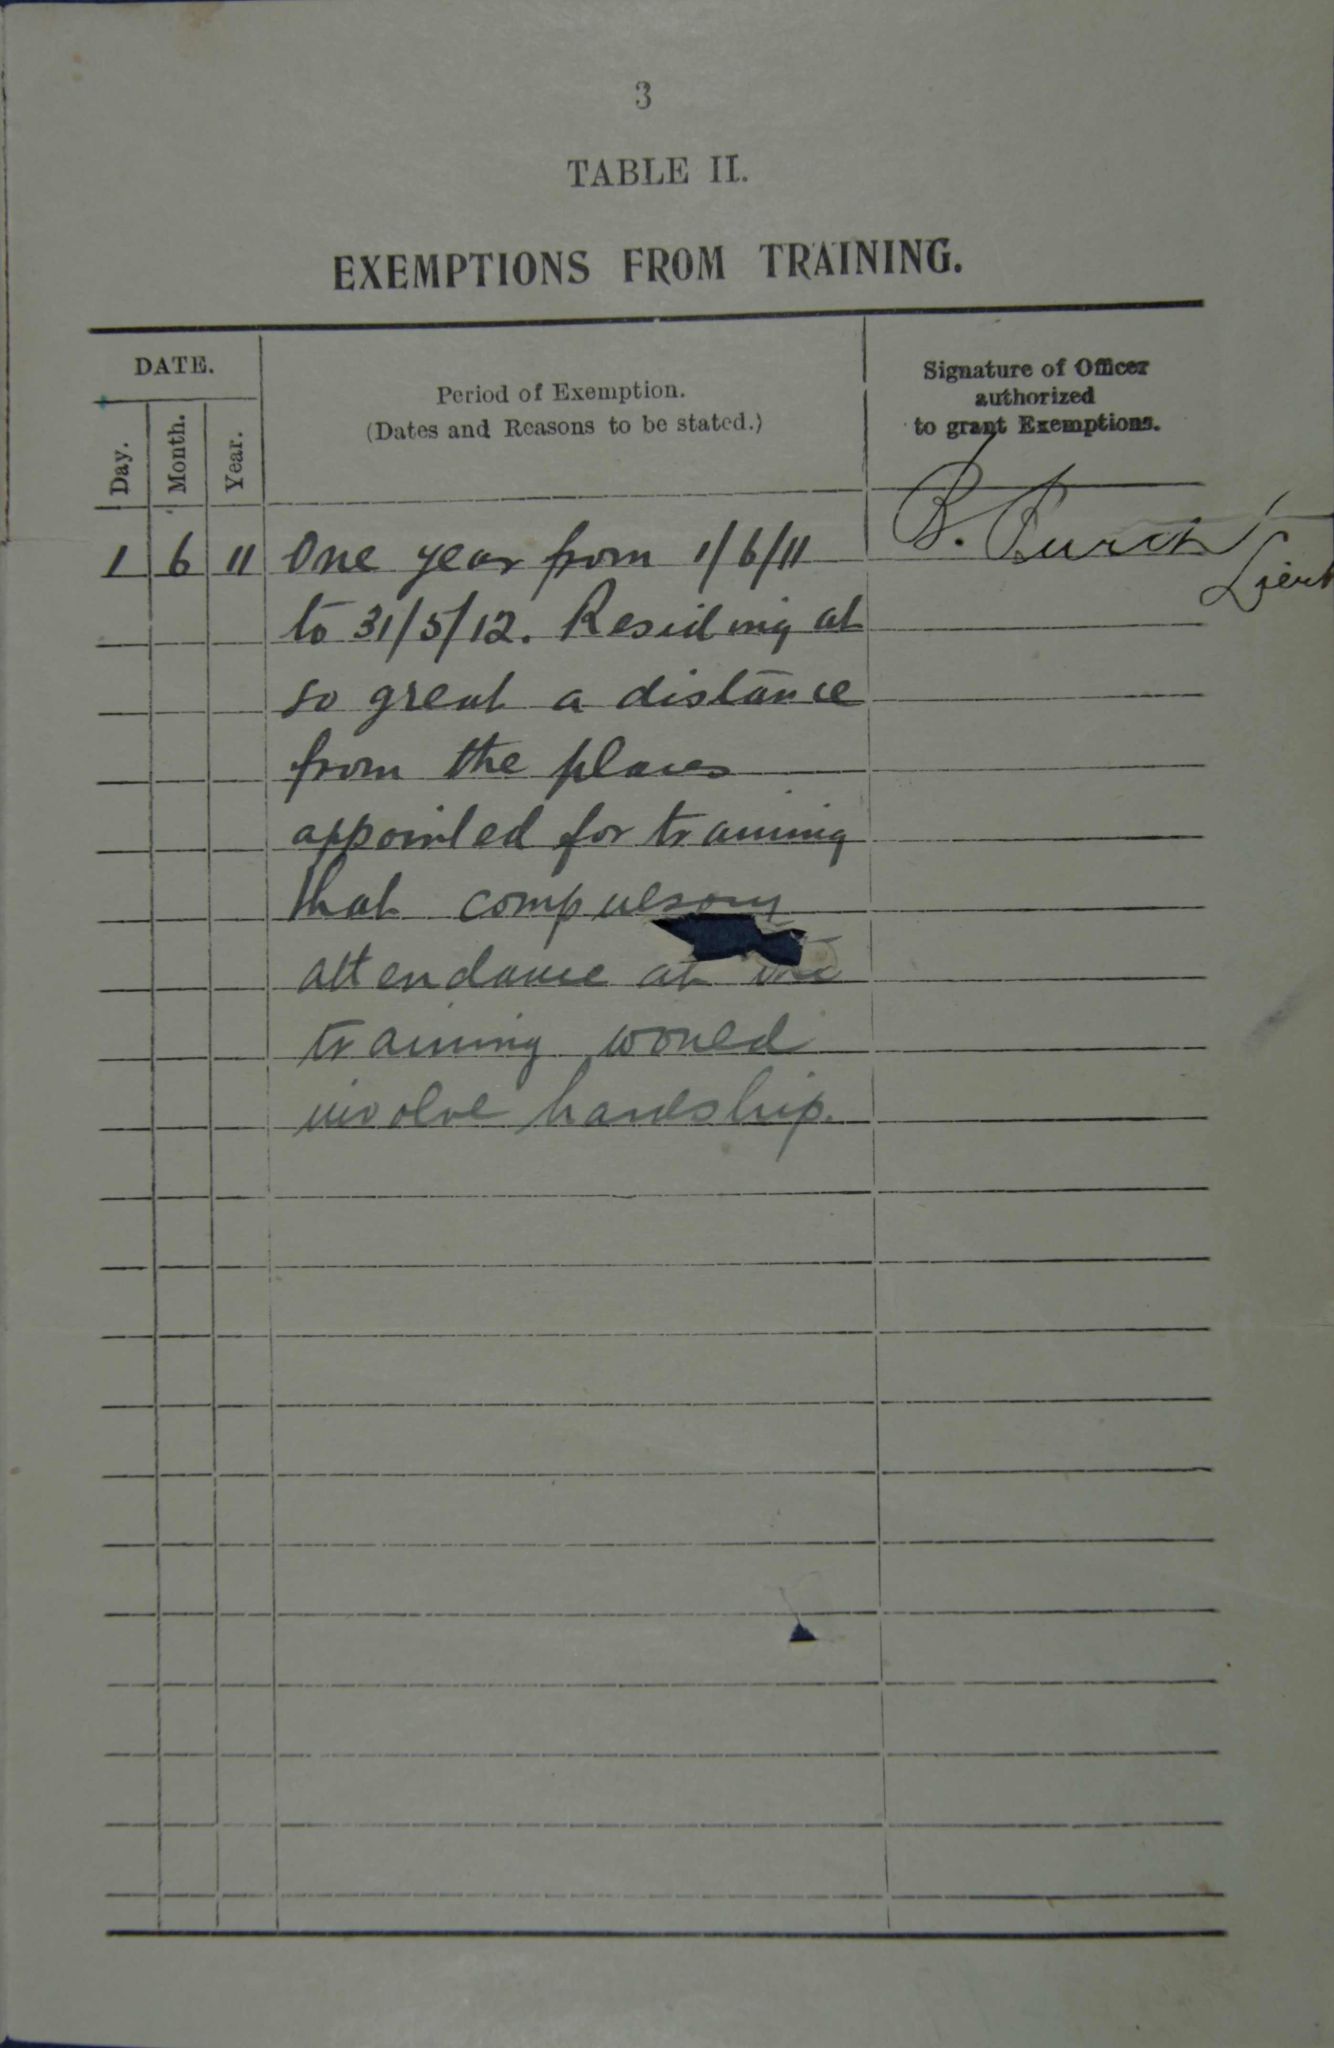 3
TABLE II.
EXEMPTIONS FROM TRAINING.
DATE.
Day.
Month.
Year.
Period of Exemption.
(Dates and Reasons to be stated.)
Signature of Officer
authorized
to grant Exemptions.
1 6 11 One year from 1/6/11
to 31/5/12. Residing at
so great a distance
from the places
appointed for training
that compulsory
attendance at the
training would
involve hardship.
B.
Lieut